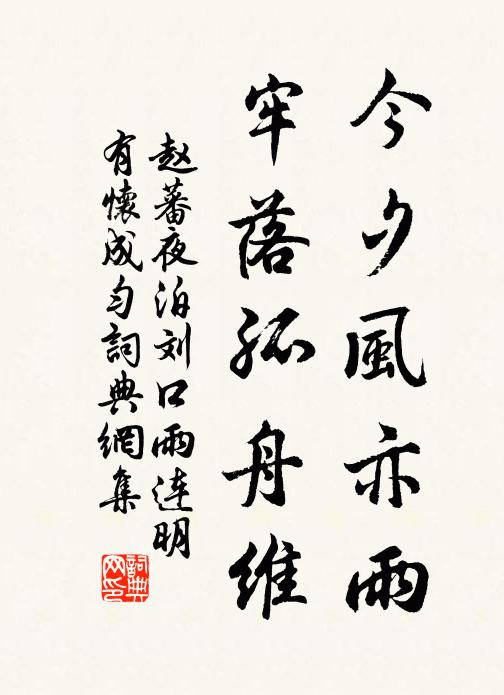 今夕風亦雨
牢落孤舟維
赵蕃夜泊刘口雨连明
有懷成勻詞典網集
詞典
网印